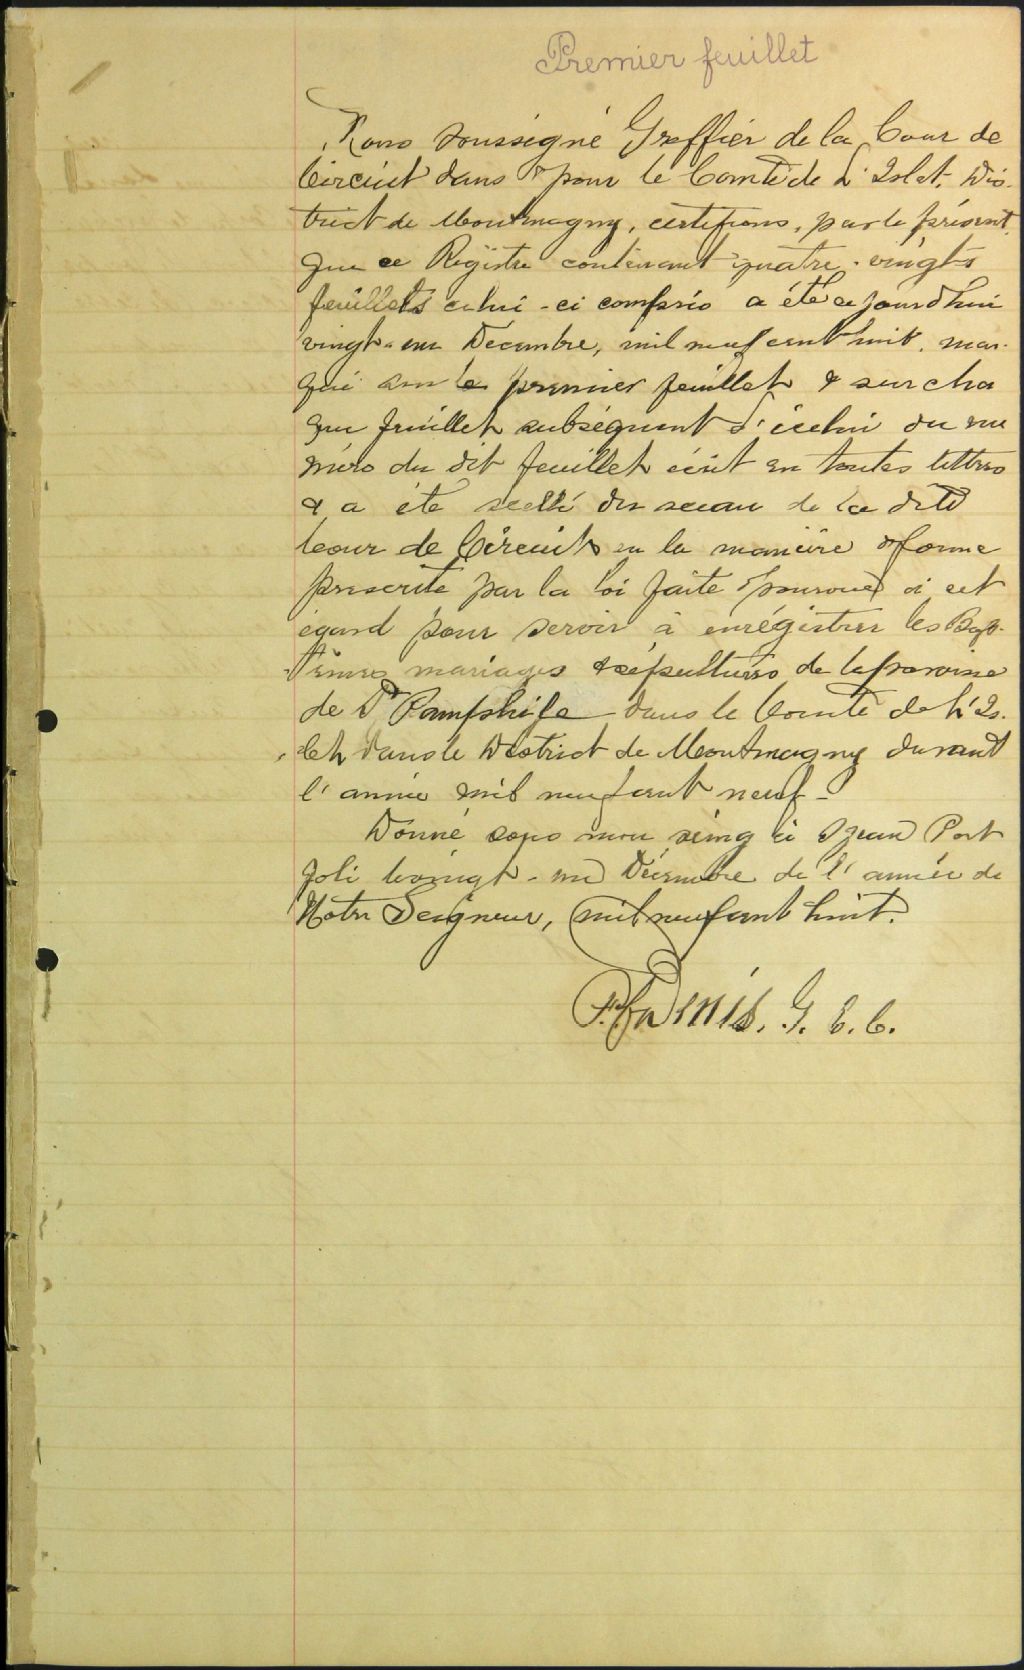 Premier feuillet
Nous soussigné Greffier de la Cour de
Circuit dans & pour le Comté de L'Islet, Dis-
trict de Montmagny, certifions, par le présent,
que ce Régistre contenant quatre-vingts
feuillets celui-ci compris a été ce jourd'hui
vingt-un Décembre, mil neuf cent huit, mar-
qué sur le premier feuillet & sur cha
que feuillet subséquent d'icelui du nu
méro du dit feuillet écrit en toutes lettres
& a été scellé du sceau de la dite
Cour de Circuit en la manière & forme
prescrite par la loi faite & pourvue à cet
égard pour servir à enrégistrer les Bap-
têmes mariages & sépultures de la paroisse
de St Pamphile dans le Comté de L'Is-
let dans le District de Montmagny durant
l'année mil neuf cent neuf-
Donné sous mon seing à St Jean Port
Joli ce vingt-un Décembre de l'année de
Notre Seigneur, mil neuf cent huit.
G. C. C.